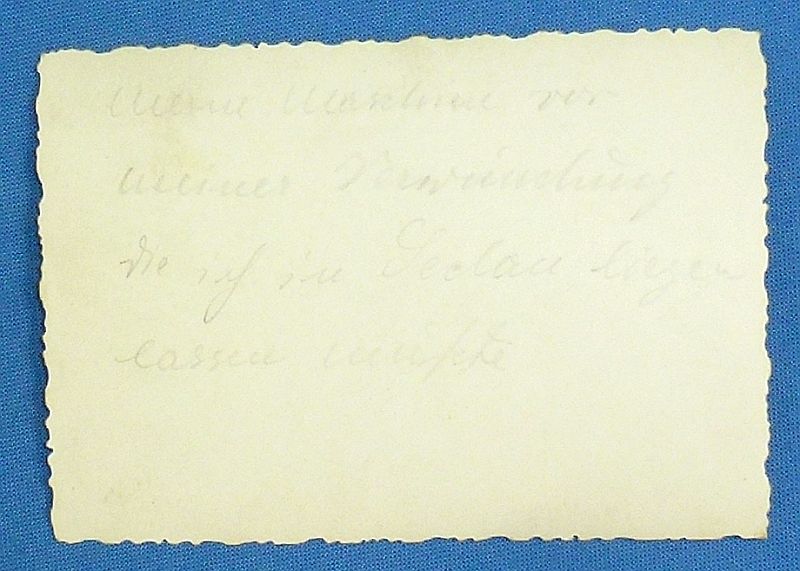 Meine Maschine vor
meiner Verwundung
die ich in liegen
lassen mußte